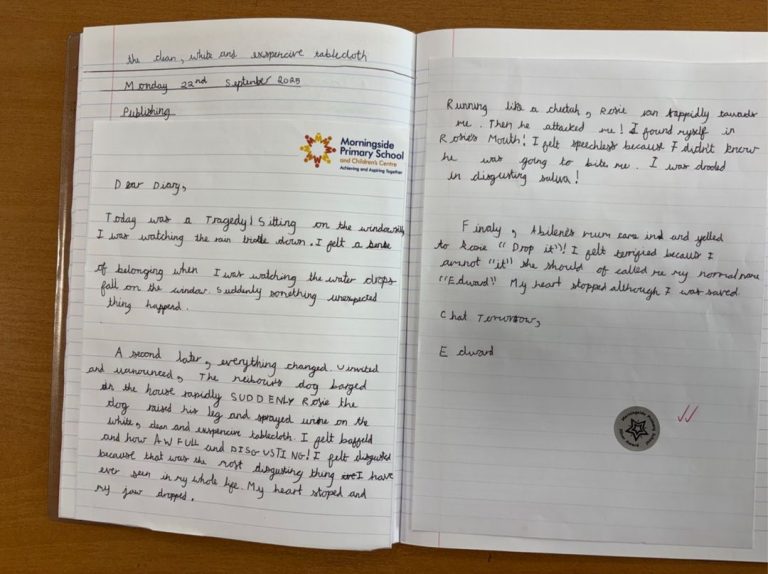 the clean, white and exspencive tablecloth
Monday 22nd September 2025
Publishing
Morningside
Primary School
and Children's Centre
Achieving and Aspiring Together
Dear Diary,
Today was a Tragedy! Sitting on the windowsilly
I was watching the rain trickle down. I felt a sense
of belonging when I was watching the water drops
fall on the window. Suddenly something unexpected
thing happend.
A second later, everything changed. Uninvited
and unanounced, The neibours dog barged
in the house rapidly SUDDENLY Rosie the
dog raised his leg and sprayed urine on the
white, clean and exspencive tablecloth. I felt baffeld
and how AWFULL and DISGUSTING! I felt disgusted
because that was the most disgusting thing I have
ever seen in my whole life. My heart stoped and
my jaw dropped.
Running like a cheetah, Rosie ran rappidly towards
me. Then he attacked me! I found myself in
Rosie's Mouth! I felt speechless because I didn't know
he was going to bite me. I was drooled
in disgusting saliva!
Finaly, Abilene's mum came in and yelled
to Rosie "Drop it"! I felt terrified because I
am not "it" she should of called me my normal name
"Edward" My heart stopped although I was saved
Chat Tomorrow,
Edward